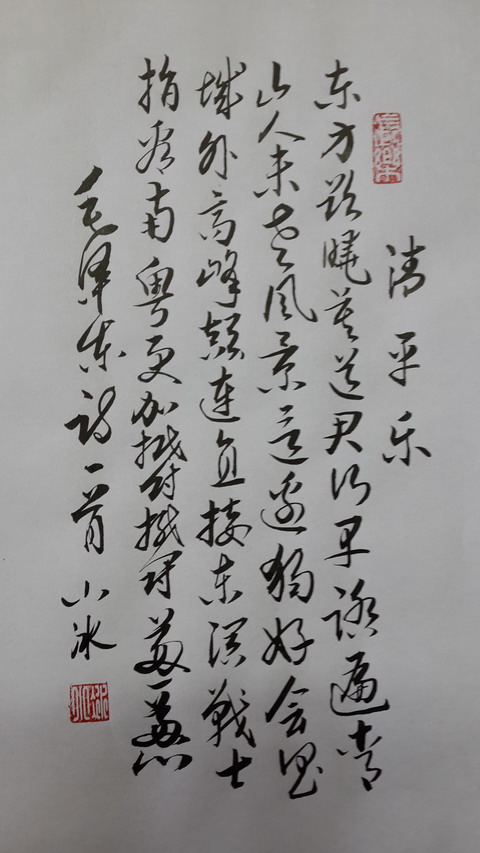 清平乐
东方欲晓莫道君行早踏遍青
山人未老风景这边独好会昌
城外高峰颠连直接东溟戰士
指看南粤更加郁郁葱葱
毛泽东诗一首 小冰